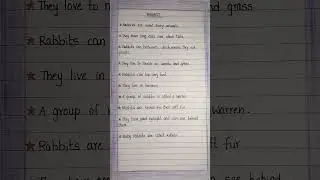 They love to
Rabbits can
They live in
A group of
Rabbits are
RABBITS
Rabbits are small furry animals.
They have long ears and short tails.
Rabbits are herbivores, which means they eat
plants.
They love to munch on carrots and grass.
Rabbits can hop very fast.
They live in burrows.
A group of rabbits is called a warren.
Rabbits are known for their soft fur.
They have good eyesight and can see behind
them.
Baby rabbits are called kittens.
and grass
Warren.
fur
see behind